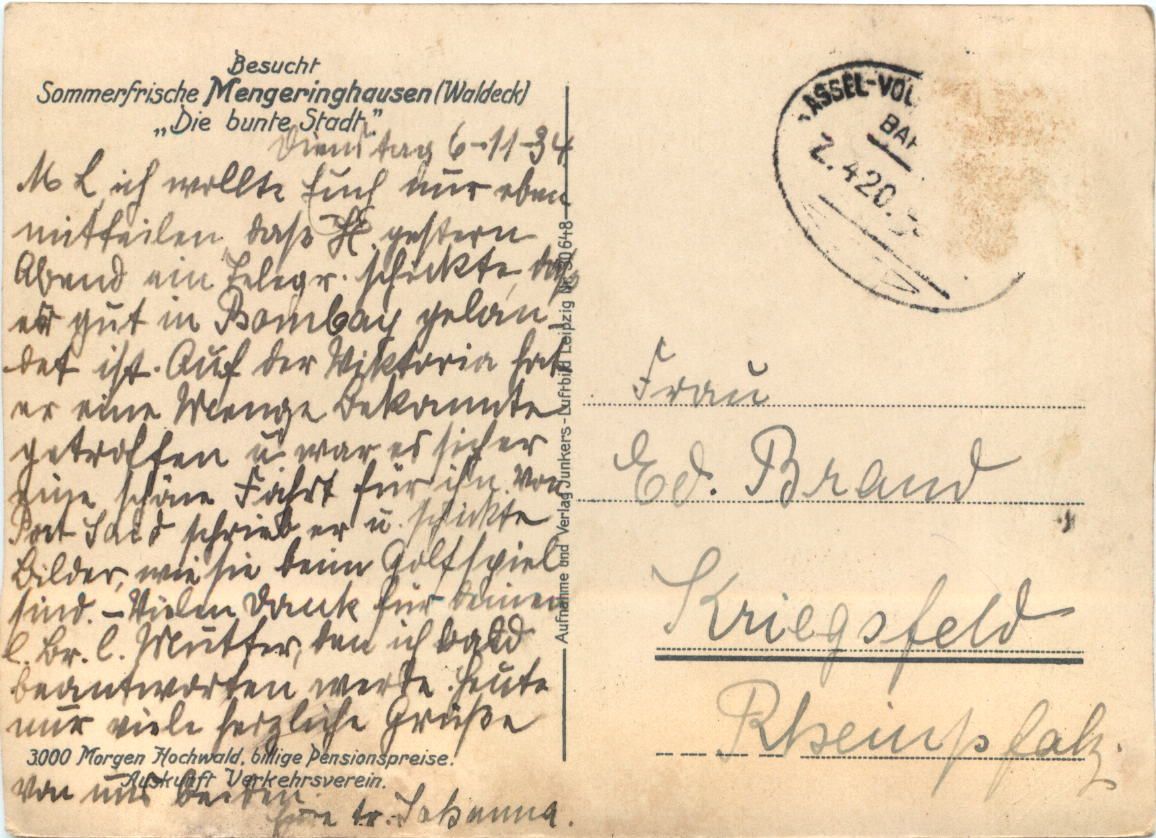 Besucht
Sommerfrische Mengeringhausen (Waldeck)
„Die bunte Stadt."
Dienstag 6-11-34
M L ich wollte Euch nur eben
mitteilen, daß gestern
Abend ein Telegr. schickte, daß
er gut in Bombay gelan-
det ist. Auf der Viktoria hat
er eine Menge Bekannte
getroffen u war es sicher
eine schöne Fahrt für ihn. Von
Port Said schrieb er u. schickte
Bilder, wie sie beim Golfspiel
sind. – Vielen Dank für Deinen
l. Br. l. Mutter, den ich bald
beantworten werde. Heute
nur viele herzliche Grüße
3000 Morgen Hochwald, billige Pensionspreise.
Auskunft Verkehrsverein.
von uns beiden.
Eure tr. Johanna.
Aufnahme und Verlag Junkers-Luftbild Leipzig Nr. 30648
ASSEL-VOL
BAH
Z. 420
Frau
Ed. Brand
Kriegsfeld
Rheinpfalz.